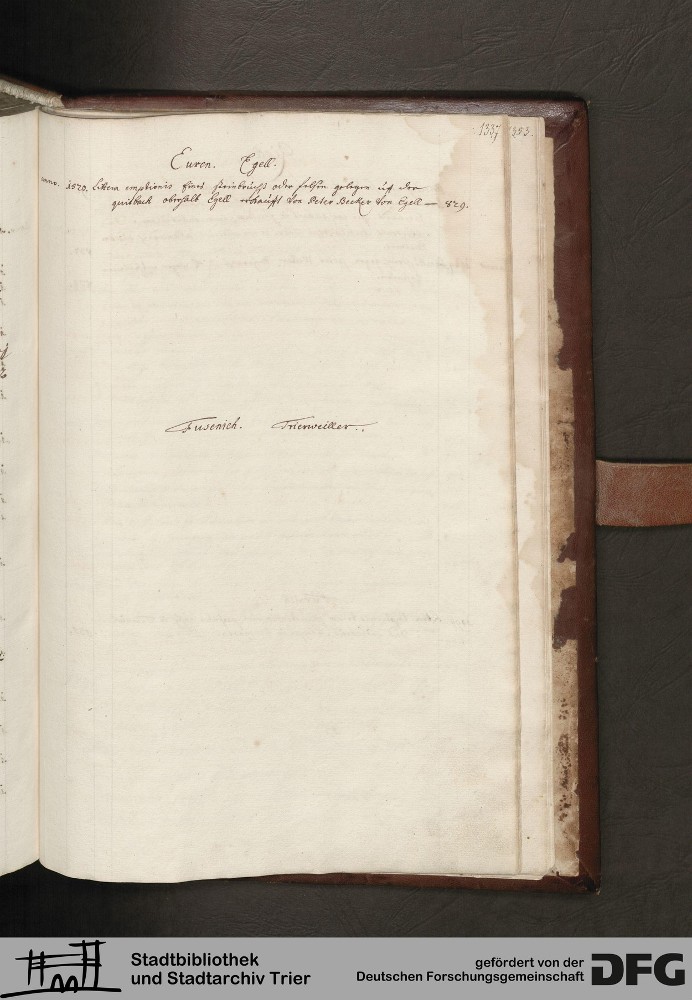 1337 353.
Euren. Egell.
anno. 1570. Littera emptionis Eines steinbruchs oder felsen gelegen uff der
quitbach oberhalb Egell erkaufft von Peter Becker von Egell — 829.
Fusenich. Trierweiller..
Stadtbibliothek
und Stadtarchiv Trier
gefördert von der
Deutschen Forschungsgemeinschaft
DFG